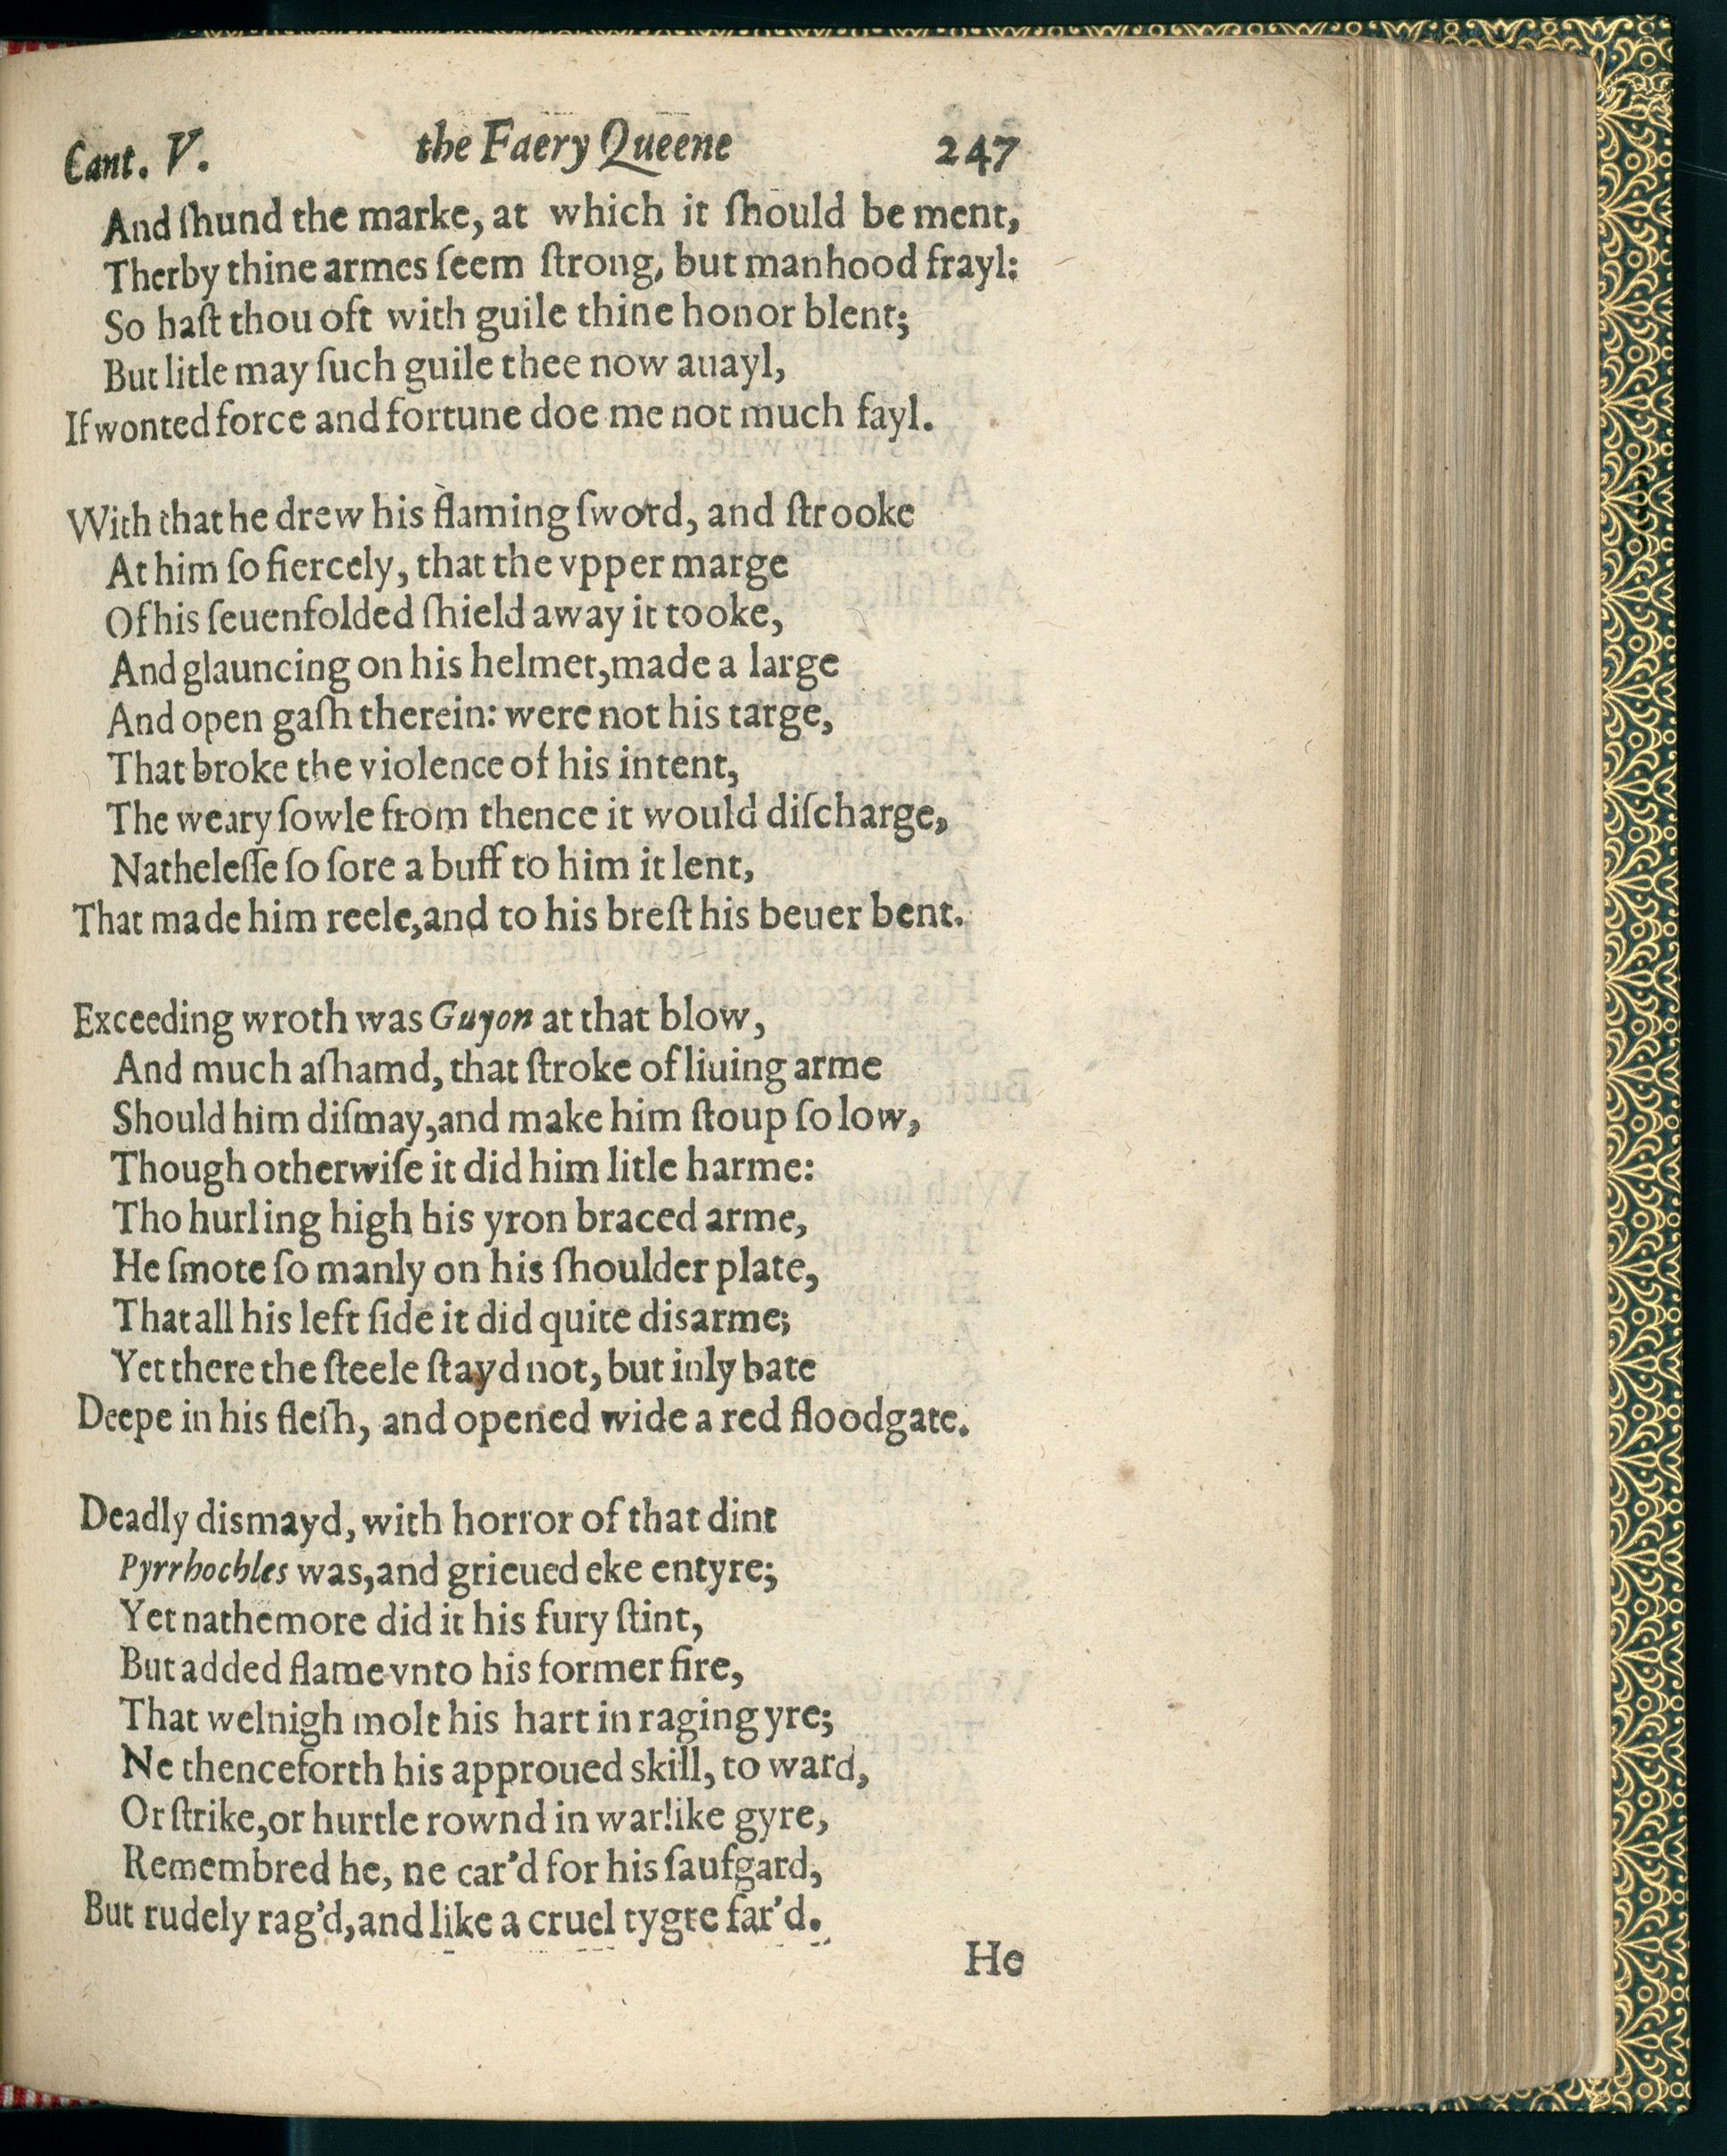 Cant. V. the Faery Queene 247
And ſhund the marke, at which it ſhould be ment,
Therby thine armes ſeem ſtrong, but manhood frayl:
So haſt thou oft with guile thine honor blent;
But litle may ſuch guile thee now auayl,
If wonted force and fortune doe me not much fayl.
With that he drew his flaming ſword, and ſtrooke
At him ſo fiercely, that the vpper marge
Of his ſeuenfolded ſhield away it tooke,
And glauncing on his helmet, made a large
And open gaſh therein: were not his targe,
That broke the violence of his intent,
The weary ſowle from thence it would diſcharge,
Natheleſſe ſo ſore a buff to him it lent,
That made him reele, and to his breſt his beuer bent.
Exceeding wroth was Guyon at that blow,
And much aſhamd, that ſtroke of liuing arme
Should him diſmay, and make him ſtoup ſo low,
Though otherwiſe it did him litle harme:
Tho hurling high his yron braced arme,
He ſmote ſo manly on his ſhoulder plate,
That all his left ſide it did quite disarme;
Yet there the ſteele ſtayd not, but inly bate
Deepe in his fleſh, and opened wide a red floodgate.
Deadly dismayd, with horror of that dint
Pyrrhochles was, and grieued eke entyre;
Yet nathemore did it his fury ſtint,
But added flame vnto his former fire,
That welnigh molt his hart in raging yre;
Ne thenceforth his approued skill, to ward,
Or ſtrike, or hurtle rownd in warlike gyre,
Remembred he, ne car'd for his ſaufgard,
But rudely rag'd, and like a cruel tygre far'd.
He